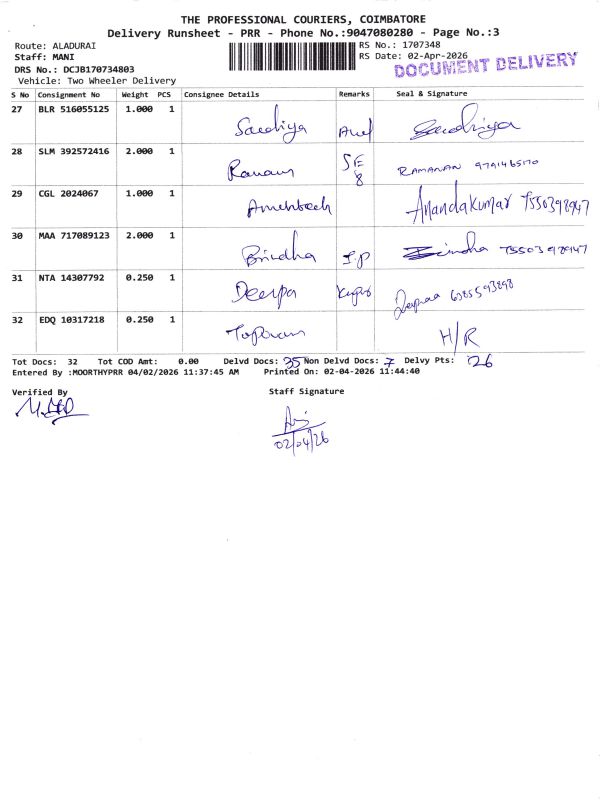 THE PROFESSIONAL COURIERS, COIMBATORE
Delivery Runsheet - PRR - Phone No.:9047080280 - Page No.:3
Route: ALADURAI RS No.: 1707348
Staff: MANI RS Date: 02-Apr-2026
DRS No.: DCJB170734803 DOCUMENT DELIVERY
Vehicle: Two Wheeler Delivery
S No Consignment No Weight PCS Consignee Details Remarks Seal & Signature
27 BLR 516055125 1.000 1
28 SLM 392572416 2.000 1 RAMANAN 9791465170
29 CGL 2024067 1.000 1 Anandakumar 7550398947
30 MAA 717089123 2.000 1 Brindha I.P 7550398947
31 NTA 14307792 0.250 1 Deepa
32 EDQ 10317218 0.250 1 H/R
Tot Docs: 32 Tot COD Amt: 0.00 Delvd Docs: 35 Non Delvd Docs: 7 Delvy Pts: 26
Entered By :MOORTHYPRR 04/02/2026 11:37:45 AM Printed On: 02-04-2026 11:44:40
Verified By Staff Signature
02/04/26